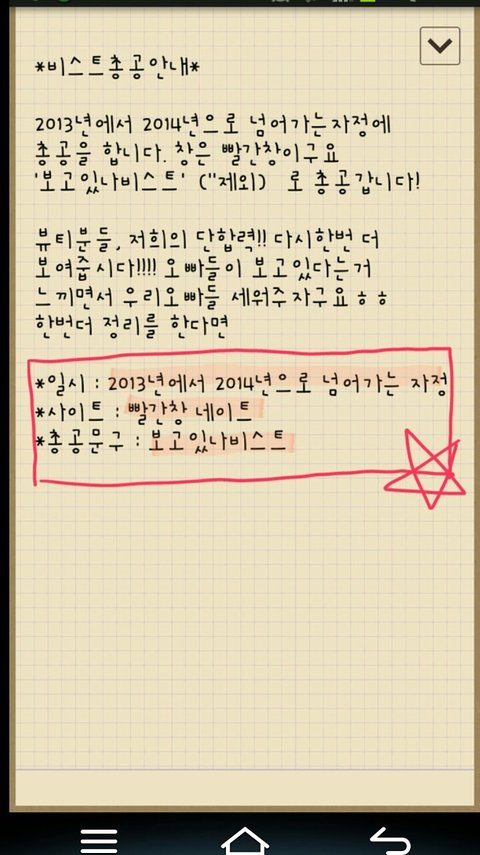 *비스트총공안내*
2013년에서 2014년으로 넘어가는자정에
총공을 합니다. 창은 빨간창이구요
'보고있나비스트' (''제외) 로 총공갑니다!
뷰티분들, 저희의 단합력!! 다시한번 더
보여줍시다!!!! 오빠들이 보고있다는거
느끼면서 우리오빠들 세워주자구요ㅎㅎ
한번더 정리를 한다면
*일시 : 2013년에서 2014년으로 넘어가는 자정
*사이트 : 빨간창 네이트
*총공문구 : 보고있나비스트